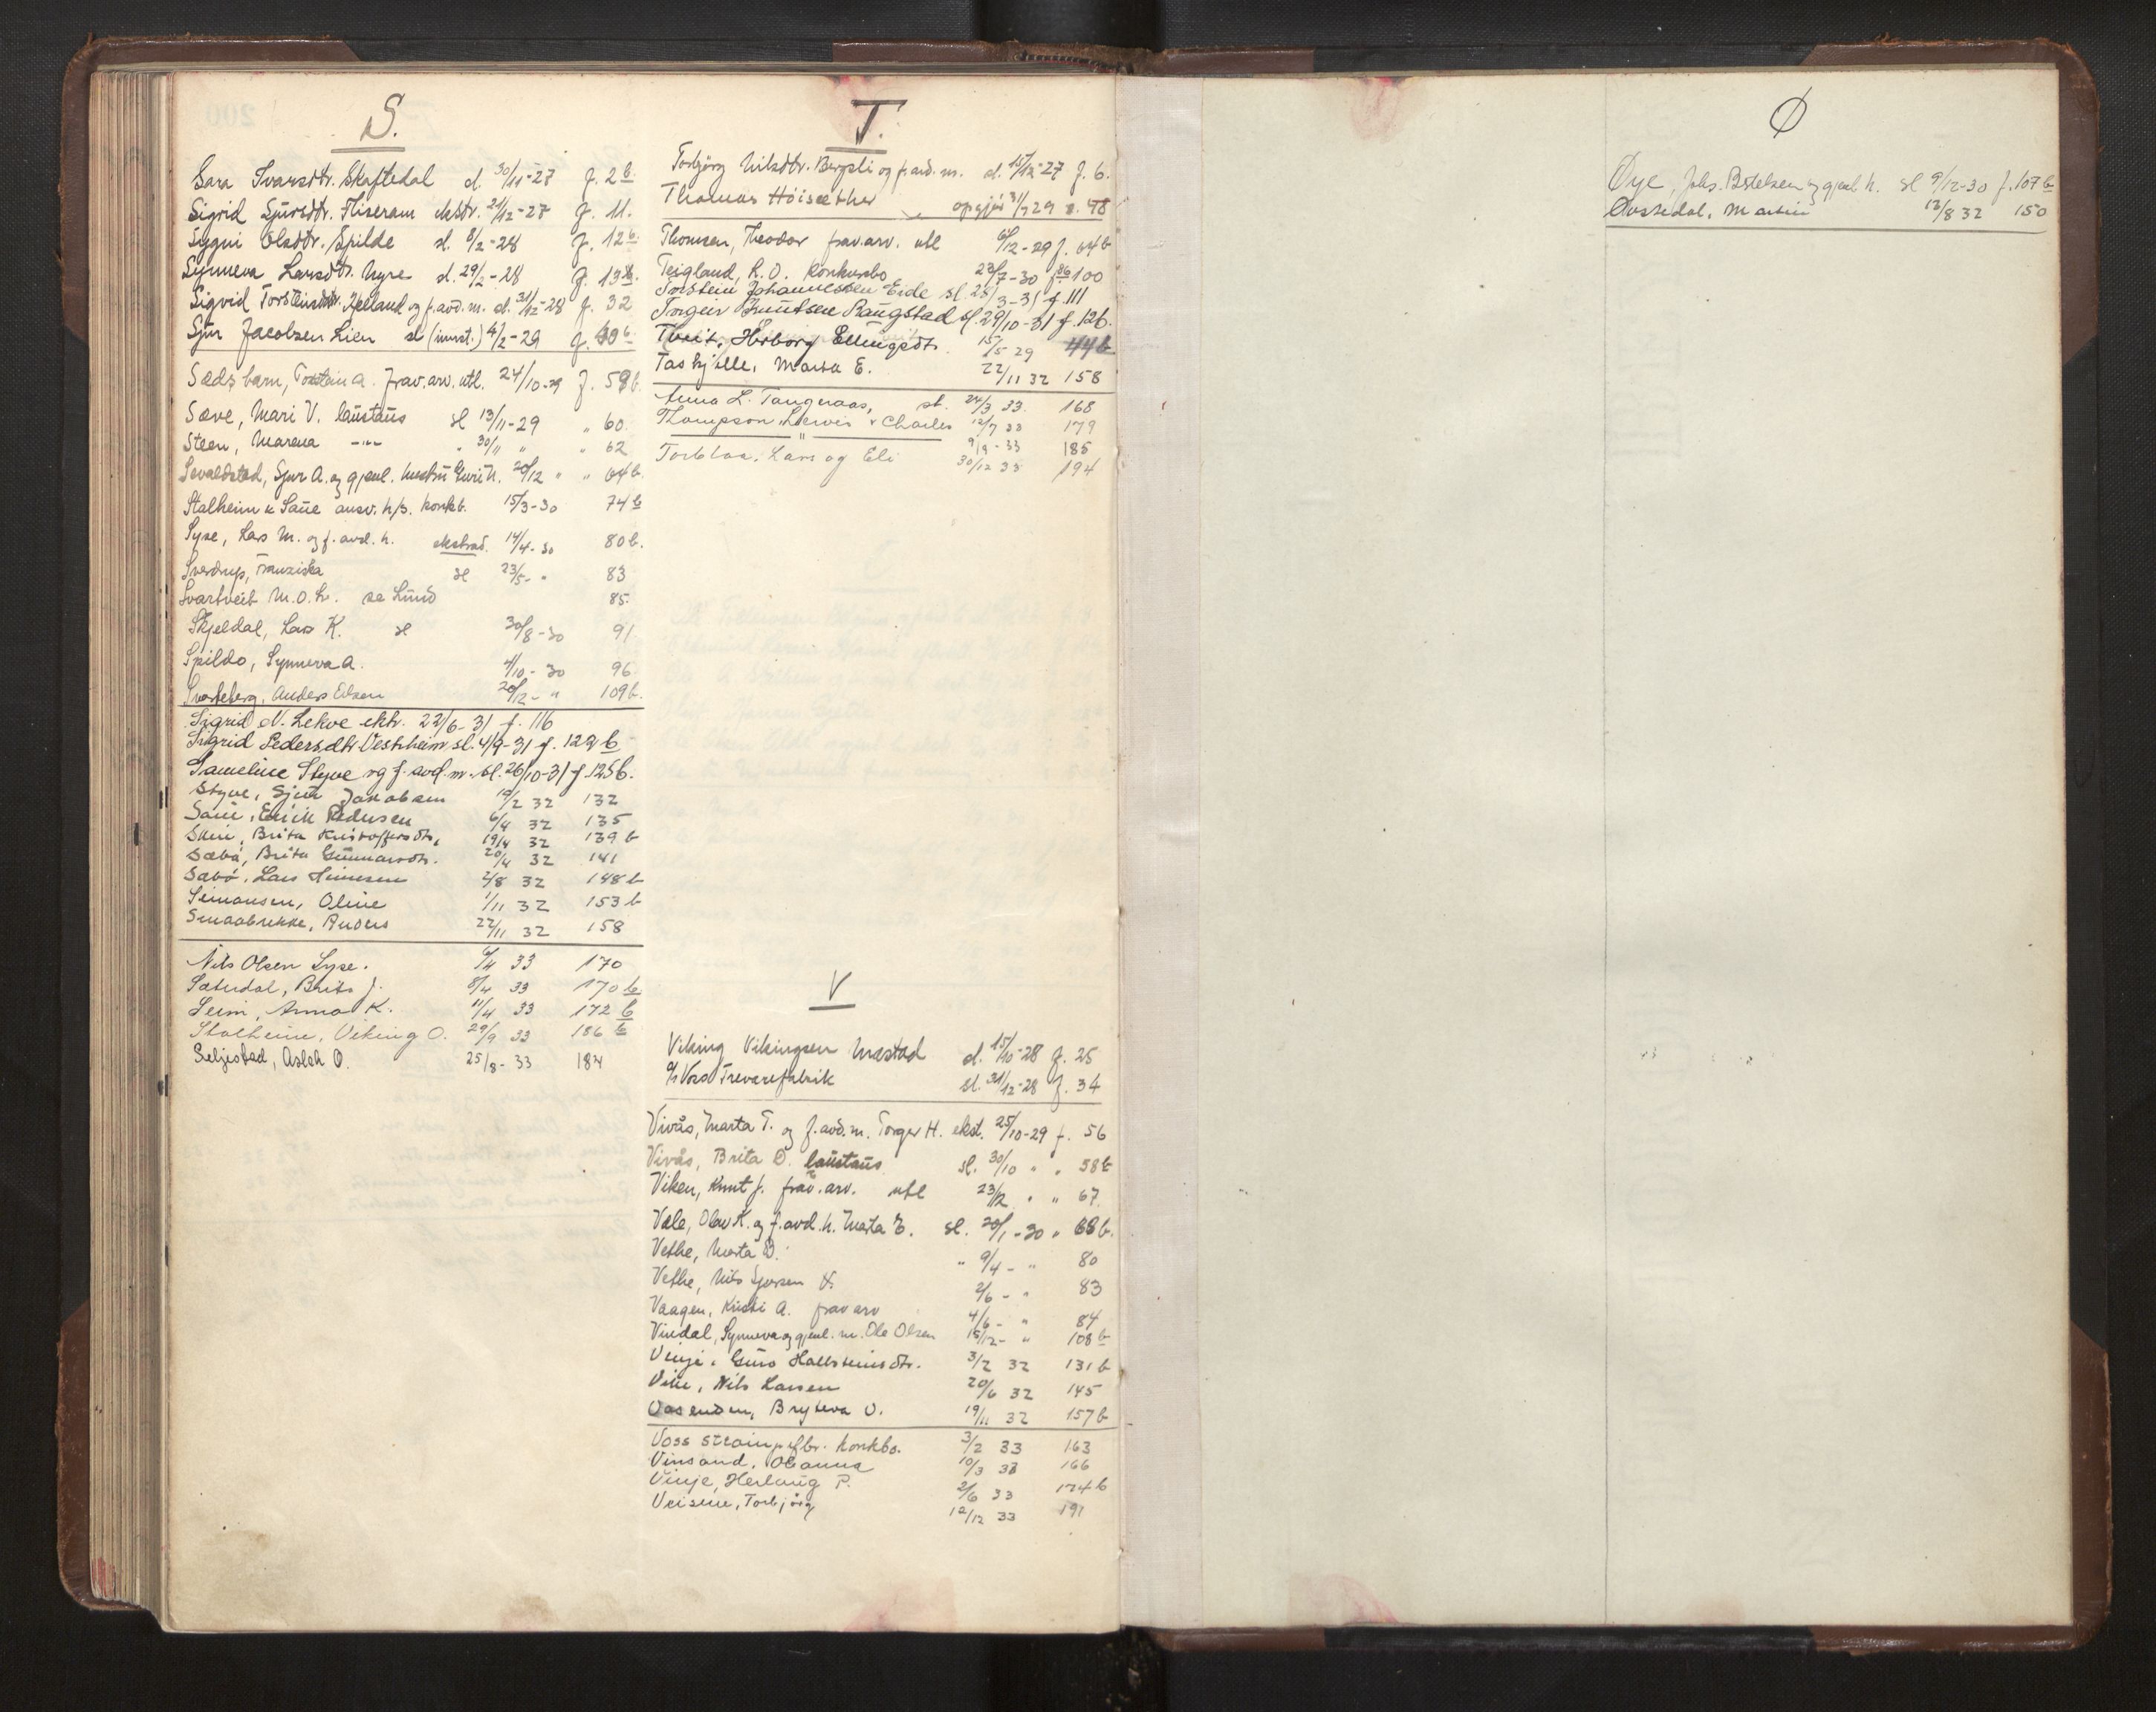 S.
Sara Ivarsdtr. Skaftedal d. 30/11-27 f. 2b
Sigrid Sjursdtr. Fliseram ekstr. 21/12-27 f. 11.
Sygni Olsdtr. Spilde sl. 8/2-28 f. 12b.
Synneva Larsdtr. Nyre d. 29/2-28 f. 13b.
Sigvid Torsteinsdtr. Hjelland og f. avd. m. d. 31/12-28 f. 32
Sjur Jacobsen Lien sl (innst.) 4/2-29 f. 39b
Sæds barn, Torstein a. frav. arv. utl. 24/10-29 f. 58b.
Sæve, Mari V. laustaus sl 13/11-29 " 60.
Steen, Marena -"- " 30/11 " " 62
Sevaldstad, Sjur A. og gjenl. hustru Guri N. 20/12 " " 64b.
Stalheim & Saue ansv. h/s. konkb. 15/3-30 74b
Syse, Lars M. og f. avd. h. ekstrad. 14/4-30 80b.
Sverdrup, Franziska sl 23/5- " 83
Svartveit M.O.L. se Lund 85.
Skjeldal, Lars K. sl 30/8-30 91
Spildo, Synneva A. 4/10-30 96
Svarteberg, Anders Olsen 20/12- " 109b.
Sigrid N. Lekve ektr. 22/6-31 f. 116
Sigrid Pedersdtr Vestrheim sl. 4/9-31 f. 122b
Sameline Styve og f. avd. m. sl. 26/10-31 f 125b.
Styve, Sjur Jakobsen 10/2 32 132
Saue, Erick Pedersen 6/4 32 135
Skeie, Brita Kristoffersdtr, 19/4 32 139 b
Sæbø, Brita Gunnarsdtr. 20/4 32 141
Sæbø, Lars Hansen 2/8 32 148b
Simonsen, Oline 1/11 32 153 b
Smaabrekke, Anders 22/11 32 158
Nils Olsen Syse. 6/4 33 170
Sæterdal, Brita J. 8/4 33 170 b
Seim, Anna K. 11/4 33 172 b
Stalheim, Viking O. 29/9 33 186 b
Seljestad, Aslak O. 25/8-33 184
T.
Torbjörg Nilsdtr. Bergsli og f. avd. m. d. 15/12-27 f. 6.
Thomas Höisæther opgjör 31/7 29 s. 48
Thomsen, Theodor frav. arv. utl 6/12-29 f. 64b
Teigland, K.O. konkursbo 23/7-30 86 100
Torstein Johannessen Eide sl. 25/3-31 f. 111
Torgeir Knutsen Raugstad sl. 29/10-31 f. 126.
Tveit, Herborg Ellingsdt. 15/5 29 44b
Taskjelle, Marta E. 22/11 32 158
Anna L. Tangeraas, sl. 24/3 33. 168
Thompson Lewis & Charles 12/7 33 179
" 9/9-33 185
Torblaa, Lars og Eli 30/12 33 194
V
Viking Vikingsen Mestad d. 15/10-28 f. 25
A/S Voss Trevarefabrik sl. 31/12-28 f. 34
Vivås, Marta T. og f. avd. m. Torger H. ekst. 25/10-29 f. 56
Vivås, Brita D. laustaus sl. 30/10 " " 58b
Viken, Knut J. frav. arv. utl 23/12 " " 67
Væle, Olav K. og f. avd. h. Marta E. sl. 20/1-30 " 68b.
Vethe, Marta D. " 9/4- " 80
Vethe, Nils Sjursen 2/6- " 83
Vaagen, Kristi A. frav arv 4/6- " 84
Vindal, Synneva og gjenl. m. Ole Olsen 15/12- " 108b
Vinje, Guro Hallsteinsdtr. 3/2 32 131b
Vike, Nils Larsen 20/6 32 145
Vasenden, Bryteva O. 19/11 32 157b
Voss steinpefbr. konkbo. 3/2 33 163
Vinsand, Oleanna 10/3 33 166
Vinje, Herlaug P. 2/6 33 174b
Veisene, Torbjörg 12/12 33 191
Ø
Øye, Johs. Botolvsen og gjenl. h. sl 9/12-30 f. 107b
Øvstedal, Martin 12/8 32 150